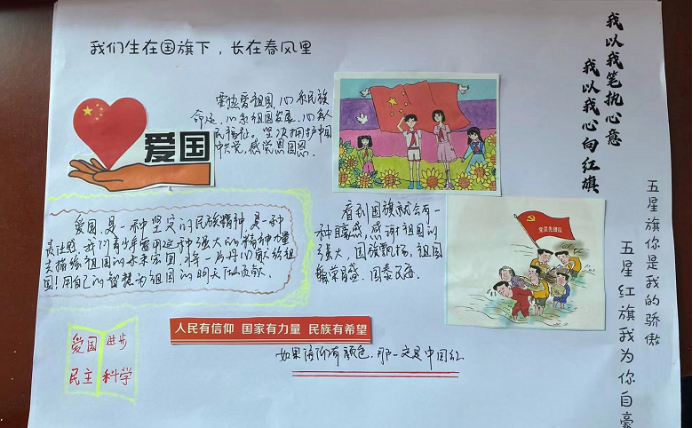 我们生在国旗下，长在春风里
我以我笔抛心意
我以我心向红旗
爱国
爱祖国，心系民族
命运，心系祖国发展，心系人
民福祉。坚决拥护中国
中共党，感党恩国恩。
看到国旗就会有一
种自豪感，感谢祖国的
强大，国旗飘扬，祖国
繁荣昌盛，国泰民安
爱国，是一种坚定的民族精神，是一种
我们青少年要用这种强大的精神力量
去描绘祖国的未来宏图，将一片丹心献给祖
国！用自己的智慧为祖国的明天做贡献
五星旗你是我的骄傲
五星红旗我为你自豪
党员先锋队
人民有信仰 国家有力量 民族有希望
爱国 进步
民主 科学
如果信仰有颜色，那一定是中国红